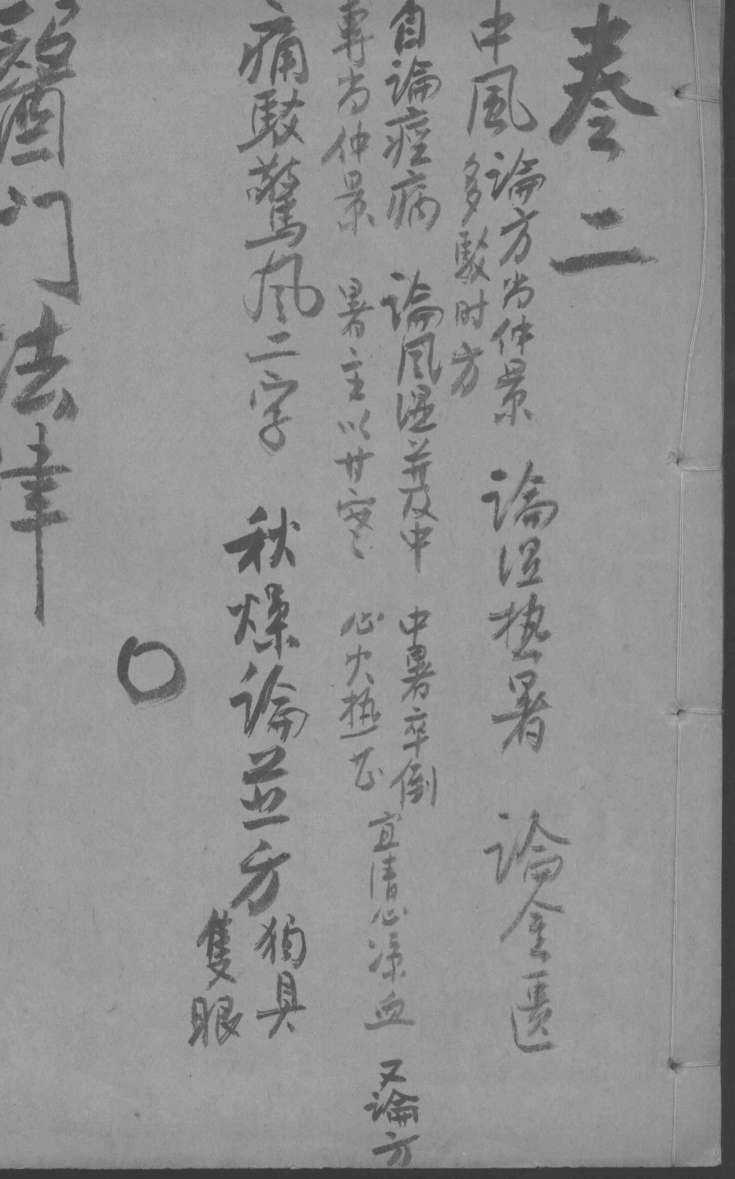 卷二
中風 論方尚仲景
多駁时方
論湿热暑 論金匱
自論痙病 論風湿并及中
專尚仲景 暑主以甘寒
中暑卒倒
心火热甚
宜清心凉血 又論方
痛駁驚風二字 秋燥論並方 獨具
隻眼
醫门法律